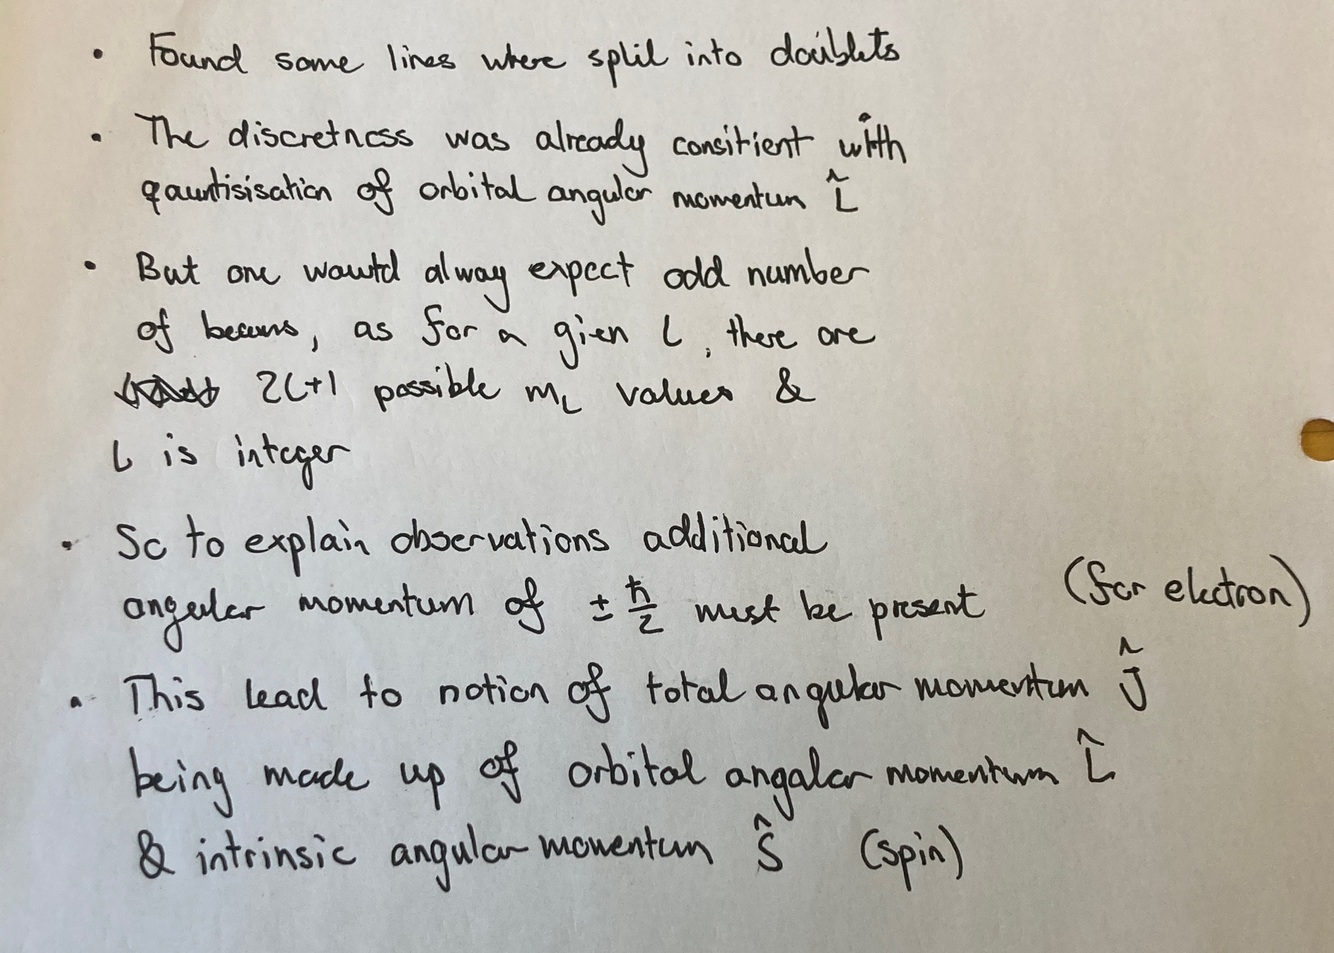 • Found some lines where split into doublets
• The discretness was already consitient with
qauntisisation of orbital angular momentum L̂
• But one would alway expect odd number
of beams, as for a given L, there are
2L+1 possible m_L values &
L is integer
• So to explain observations additional
angular momentum of ± ħ/2 must be present (for electron)
• This lead to notion of total angular momentum Ĵ
being made up of orbital angular momentum L̂
& intrinsic angular momentum Ŝ (spin)